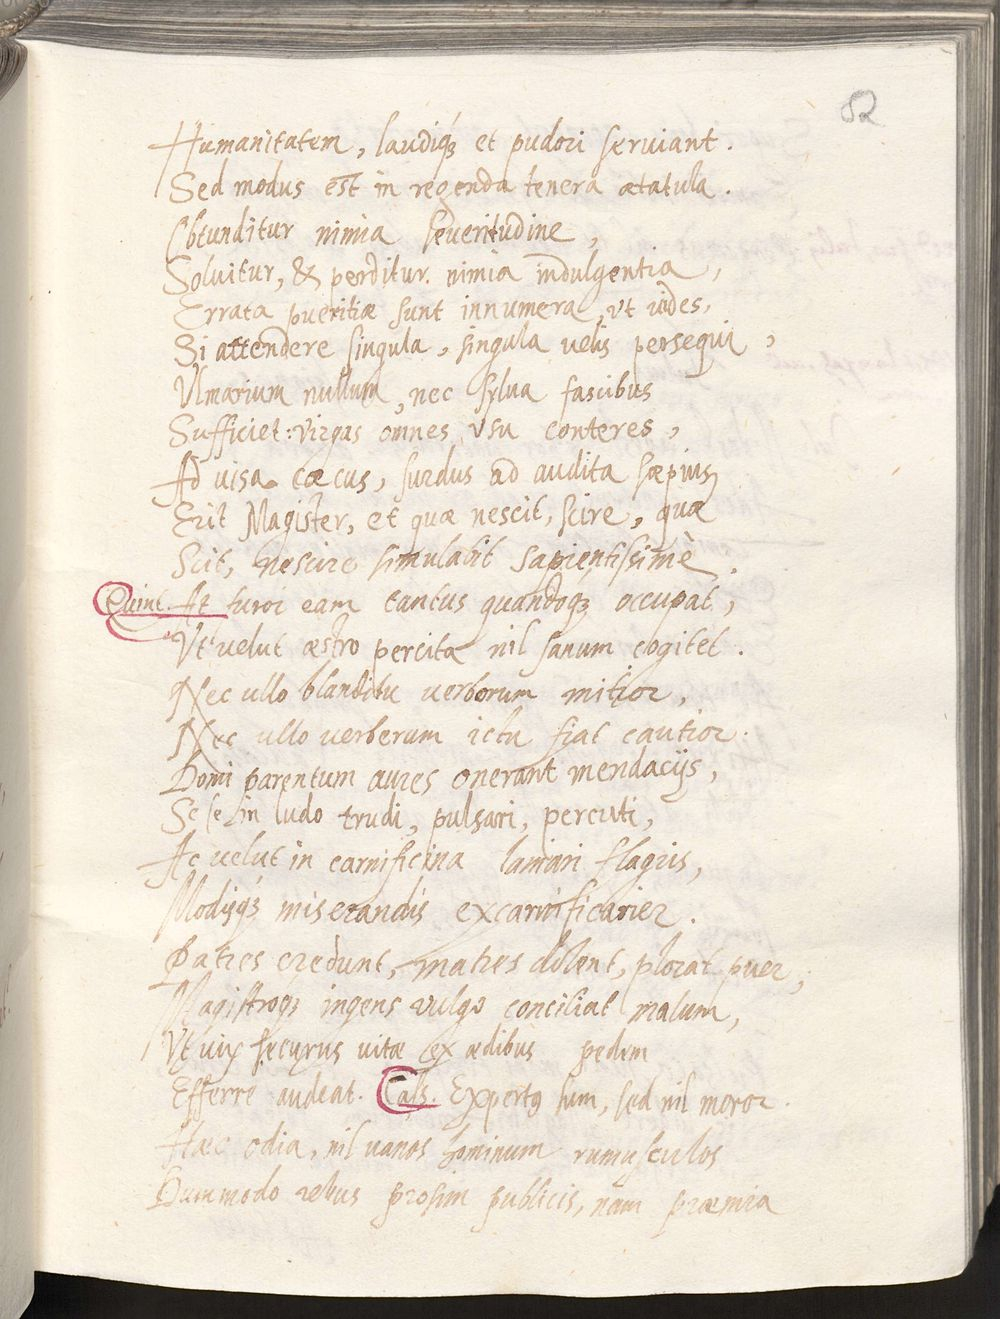 82
Humanitatem, laudiq₃ et pudori seruiant.
Sed modus est in regenda tenera ætatula.
Obtunditur nimia seueritudine,
Soluitur, & perditur nimia indulgentia,
Errata pueritiæ sunt innumera, vt vides,
Si attendere singula, singula velis persequi,
Vlmarium nullum, nec sylua fascibus
Sufficiet: virgas omnes vsu conteres,
Ad uisa cæcus, surdus ad audita sæpius
Erit Magister, et quæ nescit, scire, quæ
Scit, nescire simulabit sapientissimè.
Quint. At furor eam tantus quandoq₃ occupat,
Vt velut æstro percita nil sanum cogitet.
Nec ullo blanditu uerborum mitior,
Nec ullo uerberum ictu fiat cautior.
Domi parentum aures onerant mendacijs,
Sese in ludo trudi, pulsari, percuti,
Ac velut in carnificina laniari flagris,
Modisq₃ miserandis excarnificarier.
Patres credunt, matres dolent, plorat puer,
Magistroq₃ ingens vulgo conciliat malum,
Vt uix securus uitæ ex ædibus pedem
Efferre audeat. Cals. Expertus sum, sed nil moror
Hæc odia, nil uanos hominum rumusculos
Dummodo rebus prosim publicis, nam præmia